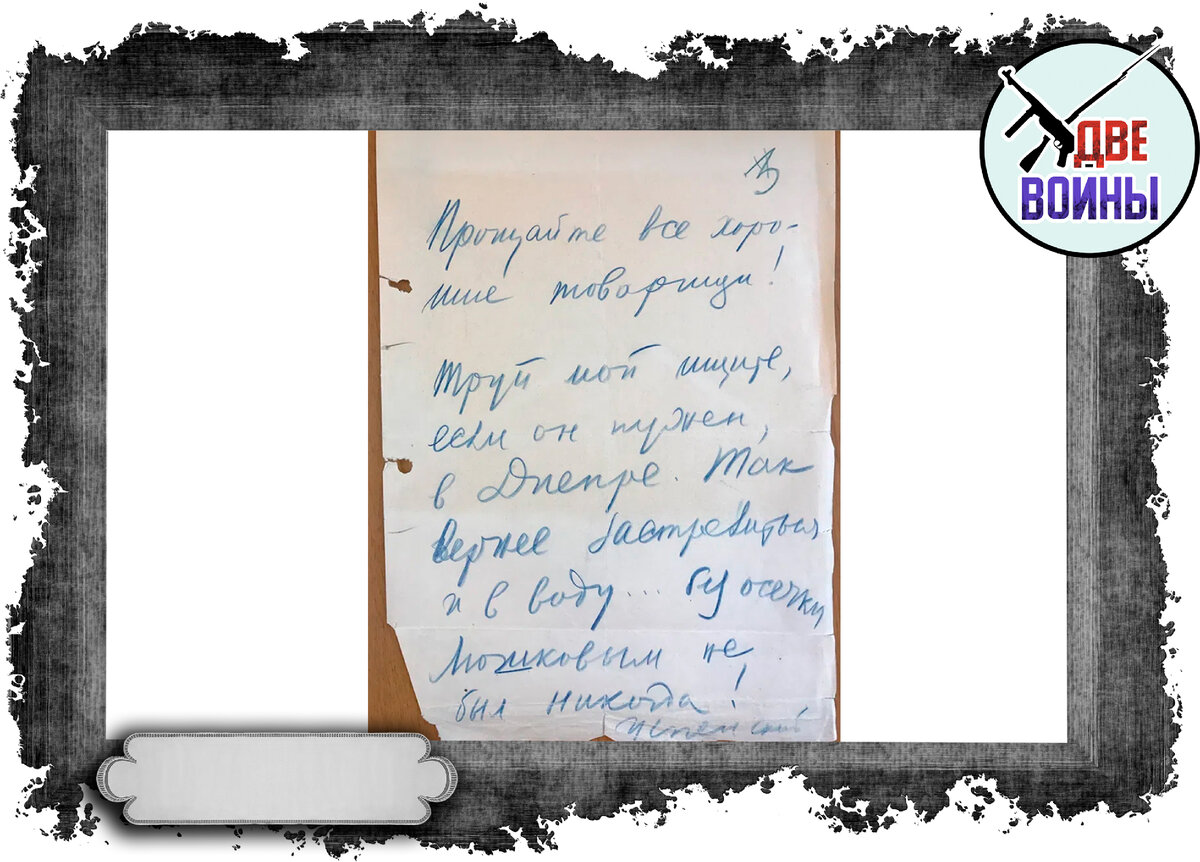 ДВЕ
ВОЙНЫ
Прощайте все хоро-
шие товарищи!
Труп мой ищите,
если он нужен,
в Днепре. Так
вернее застрелиться
и в воду... без осечки
Люшковым не
был никогда!
Успенский